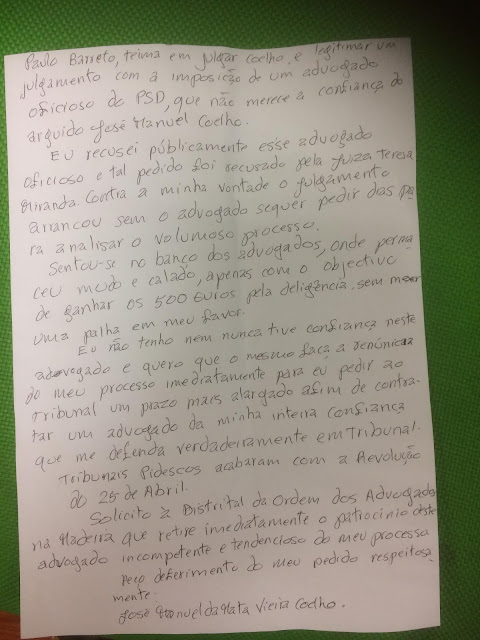 Paulo Barreto, teima em julgar Coelho, e legitimar um
julgamento com a imposição de um advogado
oficioso do PSD, que não merece a confiança do
arguido José Manuel Coelho.
Eu recusei públicamente esse advogado
oficioso e tal pedido foi recusado pela juiza Teresa
Miranda. Contra a minha vontade o julgamento
arrancou sem o advogado sequer pedir dias pa-
ra analisar o volumoso processo.
Sentou-se no banco dos advogados, onde perma
ceu mudo e calado, apenas com o objectivo
de ganhar os 500 euros pela deligência, sem mexer
uma palha em meu favor.
Eu não tenho nem nunca tive confiança neste
advogado e quero que o mesmo faça a renúncia
do meu processo imediatamente para eu pedir ao
Tribunal um prazo mais alargado afim de contra-
tar um advogado da minha inteira confiança
que me defenda verdadeiramente em Tribunal.
Tribunais Pidescos acabaram com a Revolução
do 25 de Abril.
Solicito à Distrital da Ordem dos Advogados
na Madeira que retire imediatamente o patrocinio deste
advogado incompetente e tendencioso do meu processo
Peço deferimento do meu pedido respeitosa
mente:
José Manuel da Mata Vieira Coelho.